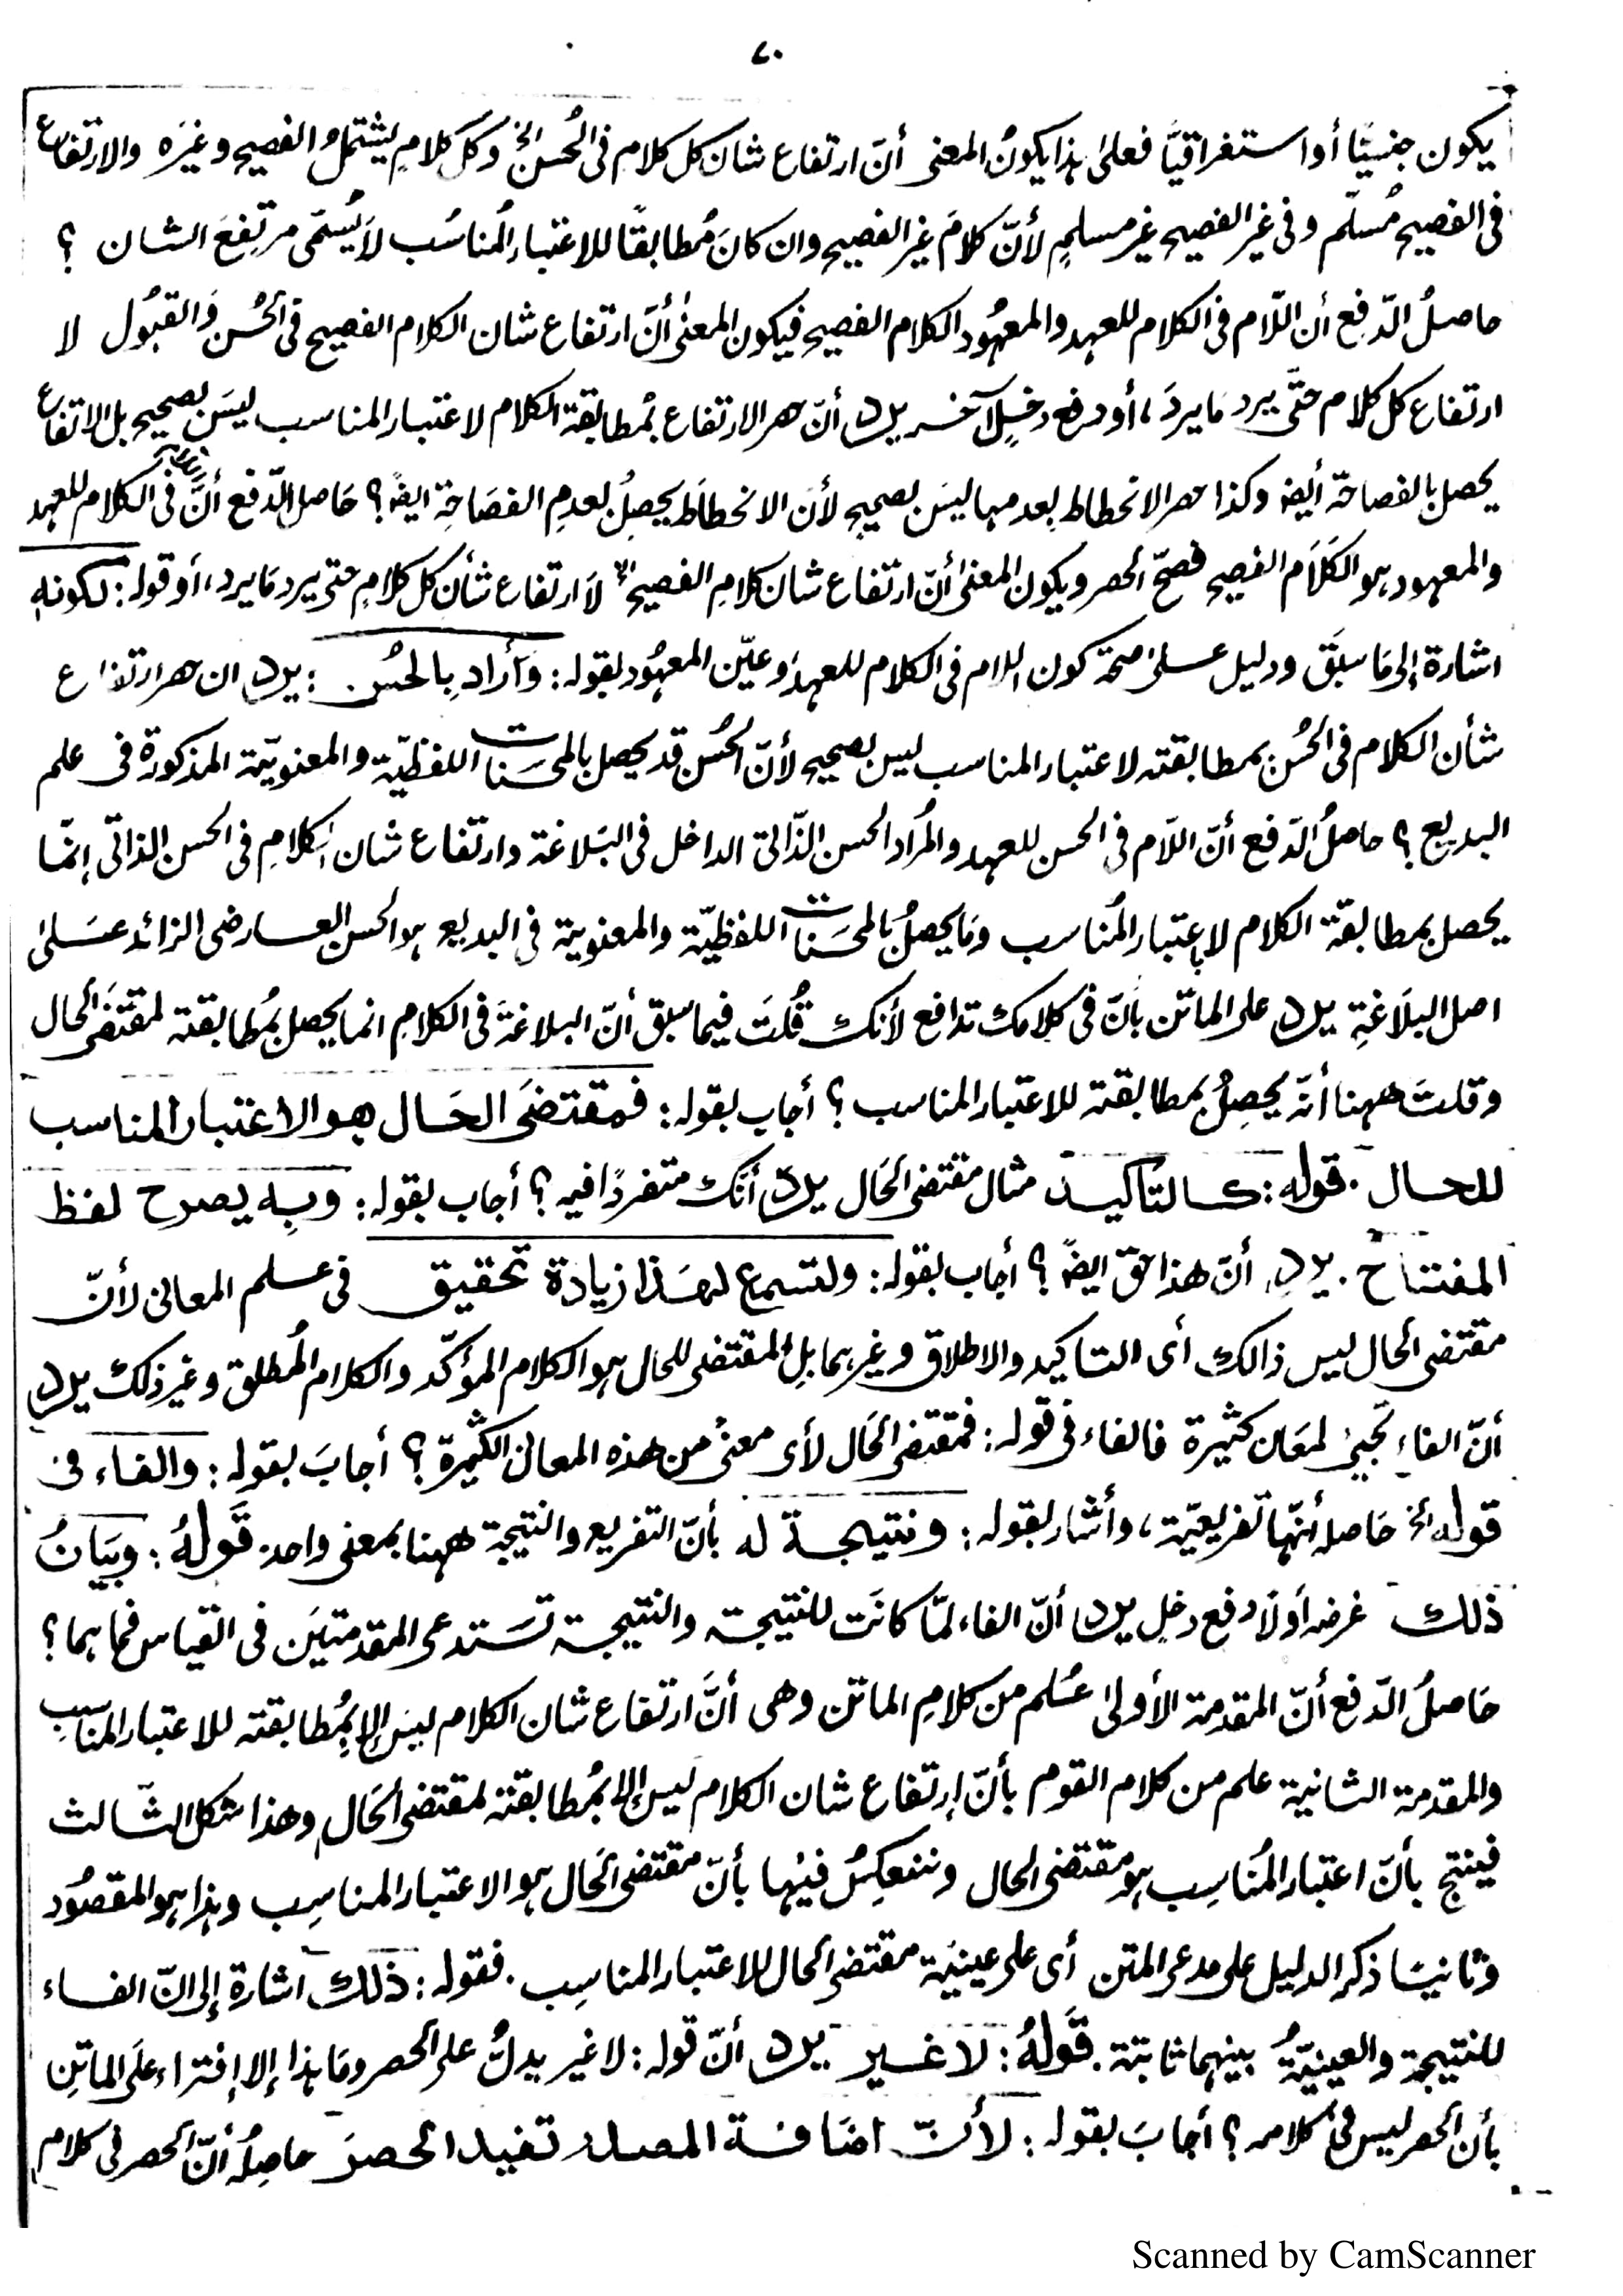 ٧٠
يكون جنسيًّا أو استغراقيًّا فعلى هذا يكونُ المعنى أنّ ارتفاع شان كل كلام فى الحُسن الخ وكل كلامٍ يشتملُ الفصيح وغيَره والارتفاع
فى الفصيح مُسلّم وفى غير الفصيح غير مسلمٍ لأنّ كلامَ غير الفصيح وان كانَ مُطابقًا للاعتبار المُناسُب لاَ يُسمّى مرتفِعَ الشان ؟
حاصلُ الدّفع أن اللّام فى الكلام للعهد والمعهُود الكلام الفصيح فيكون المعنىٰ أنّ ارتفاع شان الكلام الفصيح فى الحُسن وَالقبُول لا
ارتفاع كل كلام حتّى يرد مَا يردَ، أو دفع دخلٍ آخر يرد أنّ حصر الارتفاع بمُطابقة الكلام لاعتبار المناسب ليسَ بصحيح بل الارتفاع
يحصل بالفصاحة أيضا وكذا حصر الانحطاط بعدمها ليسَ بصحيح لأن الانحطاَط يحصِلُ بعدمِ الفصَاحِة ايضًا؟ حَاصل الدّفع أنَّ فى الكلام للعهد
والمعهود هو الكلَاَم الفصيح فصحّ الحصر ويكون المعنىٰ أنّ ارتفاع شان كلامِ الفصيح الخ لاَ ارتفاع شأن كل كلامٍ حتى يرد مَا يرد، أو قوله: لكونهِ
اشارة إلى مَا سبَق ودليل علىٰ صحة كون اللام فى الكلام للعهدَ وعيّن المعهُود بقوله: وَأرادِ بِالحسُن: يرد ان حصر ارتفاع
شأن الكلام فى الحُسن بمطابقته لاعتبار المناسب ليس بصحيح لأنّ الحُسن قد يحصل بالمحَسّنات اللفظيّة والمعنويّة المذكورة فى علم
البديع؟ حاصلُ الدّفع أنّ اللّام فى الحسن للعهد والمُراد الحسن الذّاتىّ الداخل فى البَلاغة وارتفاع شان الكلامِ فى الحسن الذاتى إنمّا
يحصل بمطابقّة الكلام لاِعتبار المُناسب ومَا يحصلُ بَالمحَسّنات اللفظيّة والمعنوية فى البديع هو الحسن العارضى الزائد عَلىٰ
اصل البلَاغةِ يرد على الماتن بأنّ فى كلامك تدافع لأنك قُلتَ فيما سبق أنّ البلاغةَ فى الكلامِ انما يحصل بمُطابقته لمقتضَى الحال
وقلتَ ههنا أنّه يحصِلُ بمطابقته للاعتبار المناسب؟ أجاب بقوله: فمقتضَى الحَال هو الاعتبار المناسب
للحال. قوله: كالتاكيد مثال مقتضى الحَال يرد أنّك متفردًا فيه؟ أجاب بقوله: وبِه يصرح لفظ
المفتاح. يرد أنّ هذا حق ايضًا؟ أجاب بقوله: ولتسمع لهٰذا زيادة تحقيق فى علم المعانى لأنّ
مقتضى الحال ليس ذالك أى التاكيد والاطلاق وغيرهما بلِ المقتضى للحال هو الكلام المؤكّد والكلام المُطلق وغير ذلك يرد
أنّ الفاءِ تجيئ لمعَان كثيرة فالفاء فى قوله: فمقتضى الحَال لأى معنىً من هذه المعانى الكثيرة؟ أجابَ بقوله: والفاء فى
قوله الخ حَاصله أنّها تفريعيّة، وأشار بقوله: ونتيجة له بأنّ التفريع والنتيجة ههنا بمعنى واحد. قَولهُ: وبيَانُ
ذلك غرضه أوّلاً دفع دخل يرد أنّ الفاء لمّا كانَت للنتيجة والنتيجة تسَتدعى المقدمتيَن فى القياس فما هما؟
حَاصلُ الدّفع أنّ المقدمة الأولىٰ عُلم من كلامِ الماتن وهى أنَّ ارتفاع شان الكلام ليسَ إلا بِمُطابقته للاعتبار المناسب
والمقدمة الثانية علم من كلام القوم بأنّ إرتفاع شان الكلام ليسَ إلا بمُطابقته لمقتضى الحَال وهذا شكل الثّالث
فينتج بأنّ اعتبار المُناسِب هو مقتضى الحال وننعكِسُ فيْها بأنّ مقتضى الحَال هو الاعتبار المناسِب وهذا هو المقصُود
وثانيًا ذكر الدليل على مدعى المتن أى على عينيَة مقتضى الحال للاعتبار المناسِب. فقوله: ذلك اشارة إلى انّ الفاء
للنتيجة والعينيّةُ بينهما ثابتة. قَولهُ: لا غير يرد أنّ قوله: لا غير يدلُّ على الحصر ومَا هذا إلا إفتراء علَى الماتِن
بأن الحصر ليس فى كلامه؟ أجابَ بقوله: لأنّ اضَافة المصدر تفيد الحصرَ حاصِلُه أنّ الحصر فى كلام
Scanned by CamScanner